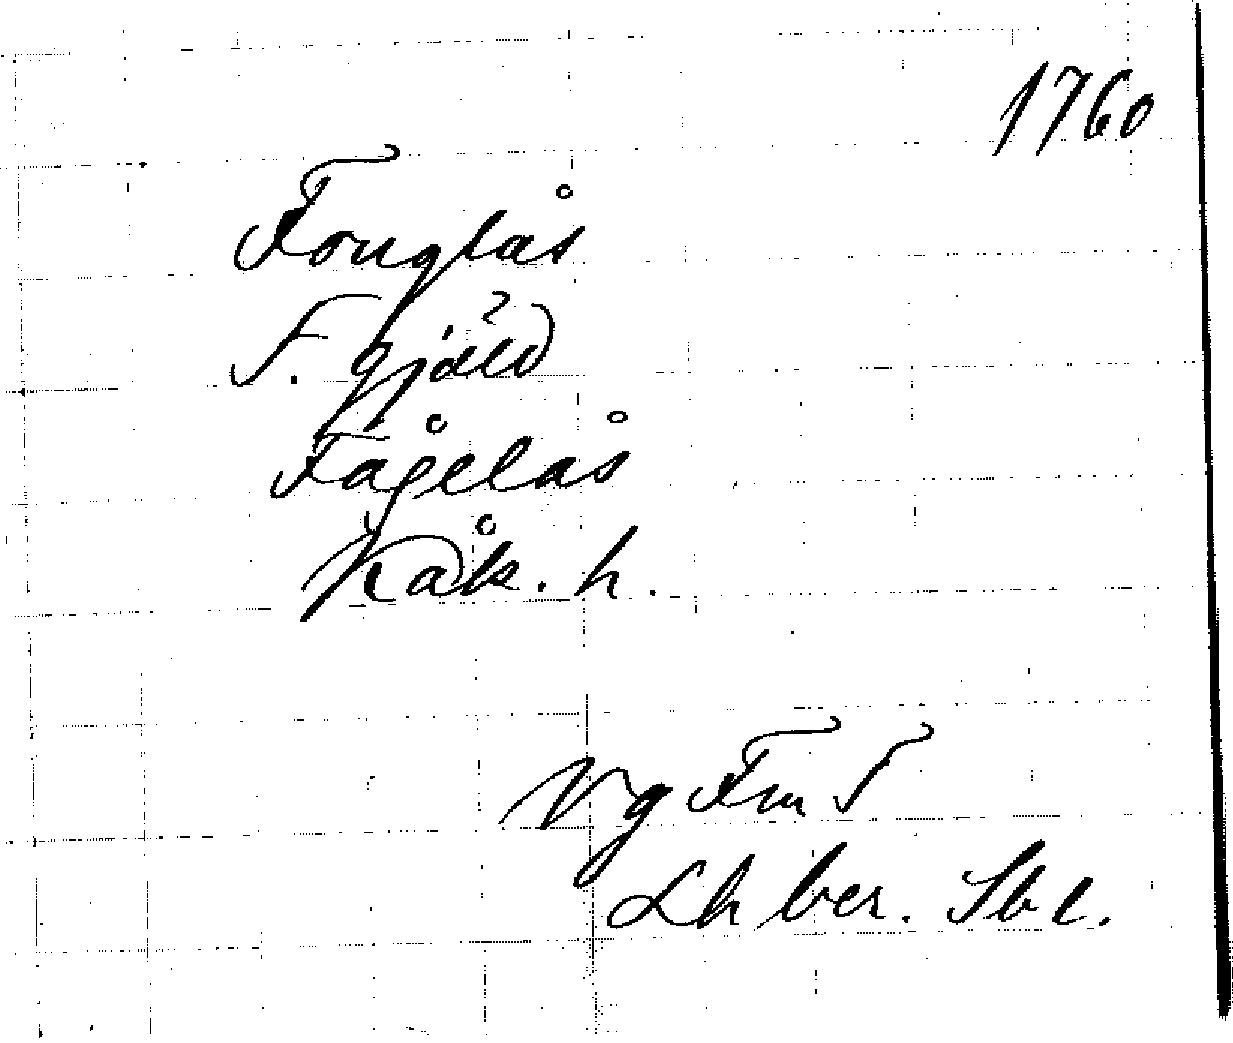 1760
Fouglås
F. gjäld
Fågelås
Kåk. h.
Vg Fm S
Lh ber. Sbl.